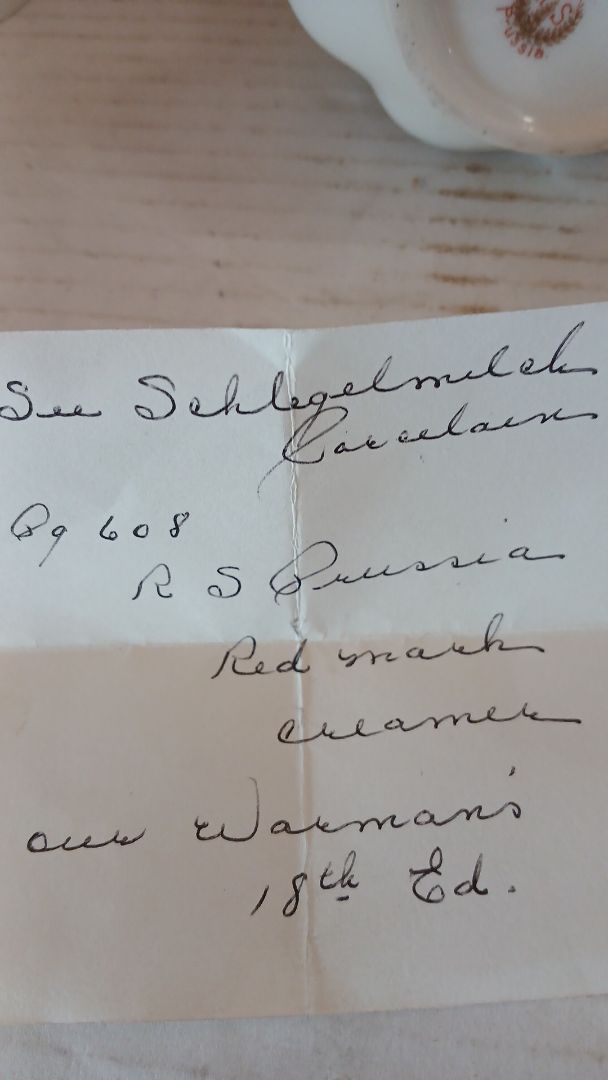 R S
Prussia.
See Schlegelmilch
Porcelain
Pg 608
R S Prussia
Red mark
creamer
our Warman's
18th Ed.